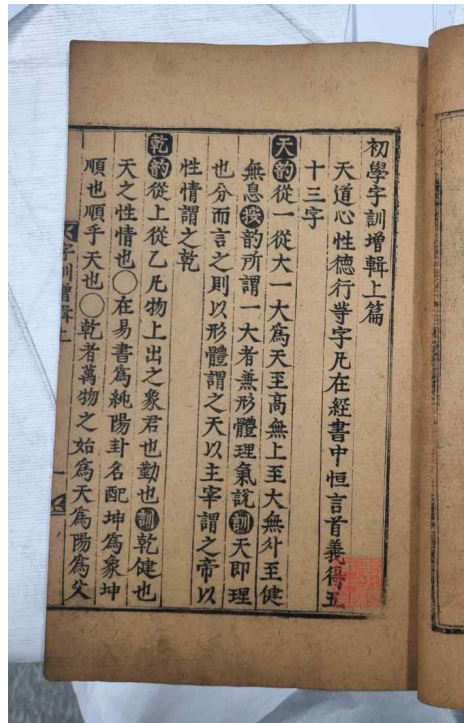 初學字訓增輯上篇
天道心性德行等字凡在經書中恒言首義得五
十三字
天韵從一從大一大爲天至高無上至大無外至健
無息按韵所謂一大者兼形體理氣說訓天即理
也分而言之則以形體謂之天以主宰謂之帝以
性情謂之乾
乾韵從上從乙凡物上出之象君也勤也訓乾健也
天之性情也〇在易書爲純陽卦名配坤爲象坤
順也順乎天也〇乾者萬物之始爲天爲陽爲父
字訓增輯上
一